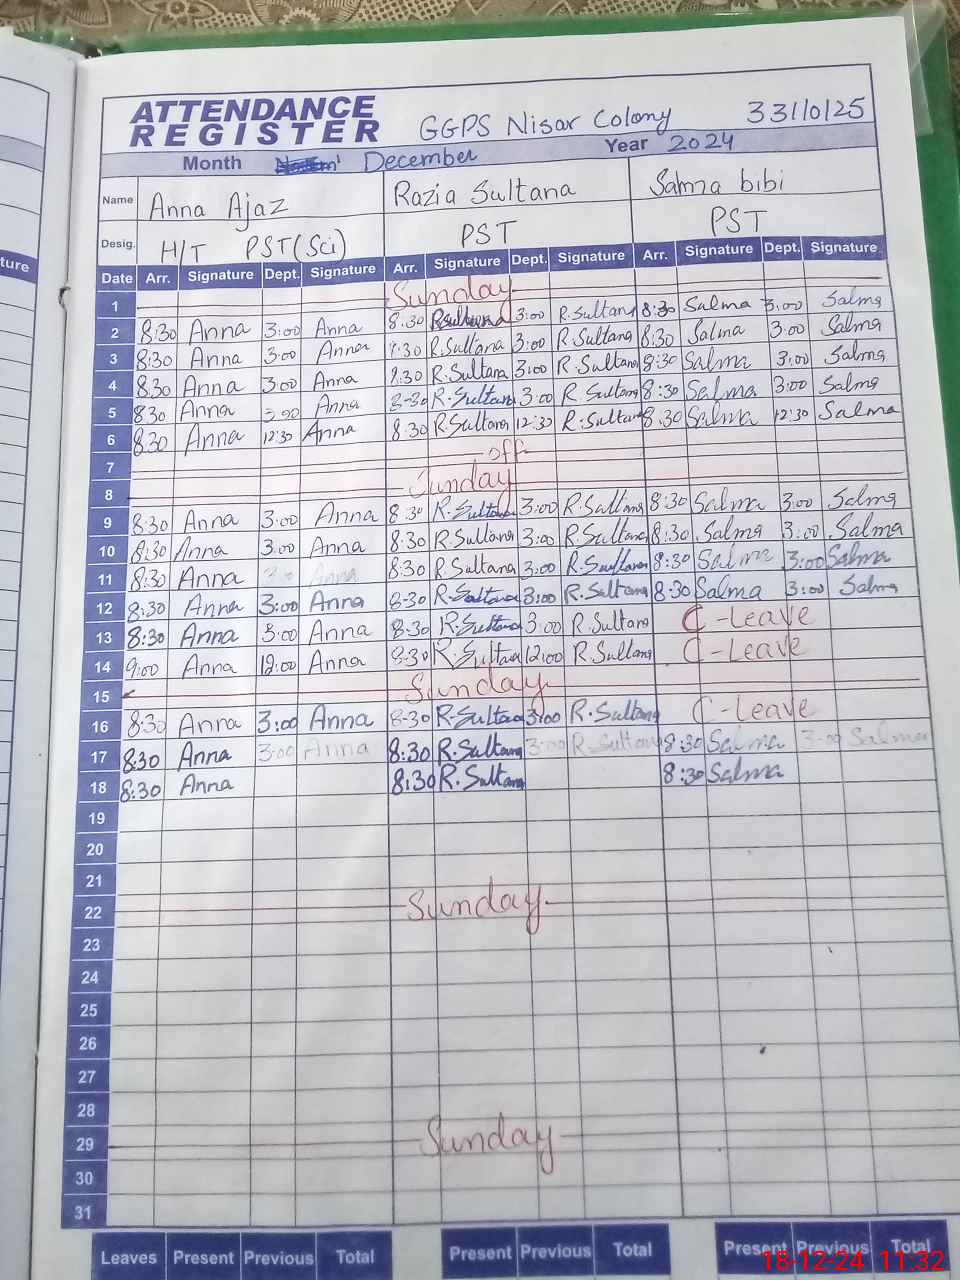 ture
ATTENDANCE
REGISTER
GGPS Nisar Colony 33110125
Month December Year 2024
Name Anna Ajaz Razia Sultana Salma bibi
Desig. H/T PST(Sci) PST PST
Date Arr. Signature Dept. Signature Arr. Signature Dept. Signature Arr. Signature Dept. Signature
1 Sunday
2 8:30 Anna 3:00 Anna 8:30 R.Sultana 3:00 R.Sultana 8:30 Salma 3:00 Salma
3 8:30 Anna 3:00 Anna 8:30 R.Sultana 3:00 R.Sultana 8:30 Salma 3:00 Salma
4 8:30 Anna 3:00 Anna 8:30 R.Sultana 3:00 R.Sultana 8:30 Salma 3:00 Salma
5 8:30 Anna 3:00 Anna 8-30 R.Sultana 3:00 R.Sultana 8:30 Salma 3:00 Salma
6 8:30 Anna 12:30 Anna 8:30 R.Sultana 12:30 R.Sultana 8:30 Salma 12:30 Salma
7 off
8 Sunday
9 8:30 Anna 3:00 Anna 8:30 R.Sultana 3:00 R.Sultana 8:30 Salma 3:00 Salma
10 8:30 Anna 3:00 Anna 8:30 R.Sultana 3:00 R.Sultana 8:30 Salma 3:00 Salma
11 8:30 Anna 3:00 Anna 8:30 R.Sultana 3:00 R.Sultana 8:30 Salma 3:00 Salma
12 8:30 Anna 3:00 Anna 8-30 R.Sultana 3:00 R.Sultana 8:30 Salma 3:00 Salma
13 8:30 Anna 3:00 Anna 8-30 R.Sultana 3:00 R.Sultana C-Leave
14 9:00 Anna 12:00 Anna 8-30 R.Sultana 12:00 R.Sultana C-Leave
15 Sunday
16 8:30 Anna 3:00 Anna 8-30 R.Sultana 3:00 R.Sultana C-Leave
17 8:30 Anna 3:00 Anna 8:30 R.Sultana 3:00 R.Sultana 8:30 Salma 3:00 Salma
18 8:30 Anna 8:30 R.Sultana 8:30 Salma
19
20
21
22 Sunday
23
24
25
26
27
28
29 Sunday
30
31
Leaves Present Previous Total Present Previous Total Present Previous Total
18-12-24 11:32